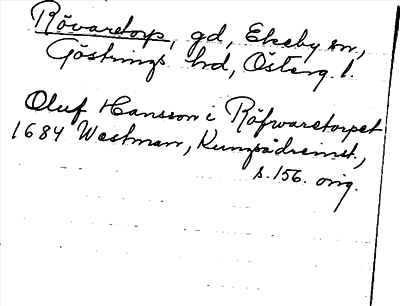 Rövaretorp, gd, Ekeby sn,
Göstrings hd, Österg. l.
Oluf Hansson i Röfwaretorpet
1684 Westman, Kungsådreinst.,
s. 156. orig.